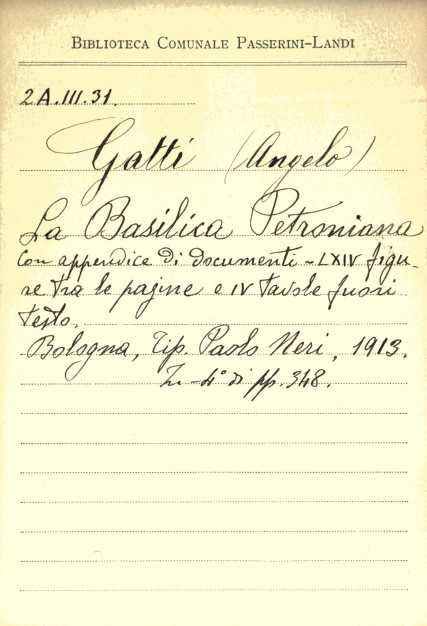 BIBLIOTECA COMUNALE PASSERINI-LANDI
2A.III.31.
Gatti (Angelo)
La Basilica Petroniana
Con appendice di documenti - LXIV figu-
re tra le pagine e IV tavole fuori
testo.
Bologna, Tip. Paolo Neri, 1913.
In-4° di pp. 348.